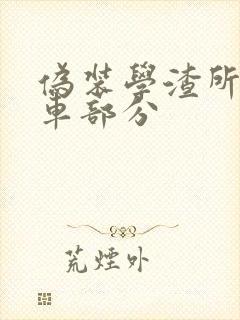 偽裝學渣所
車部分
荒煙外